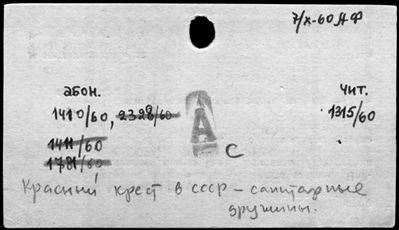 7/X-60 АФ
абон. чит.
1410/60, 2328/60 1315/60
1411/60
1781/60
А
с
Красный крест в ссср – санитарные
дружины.